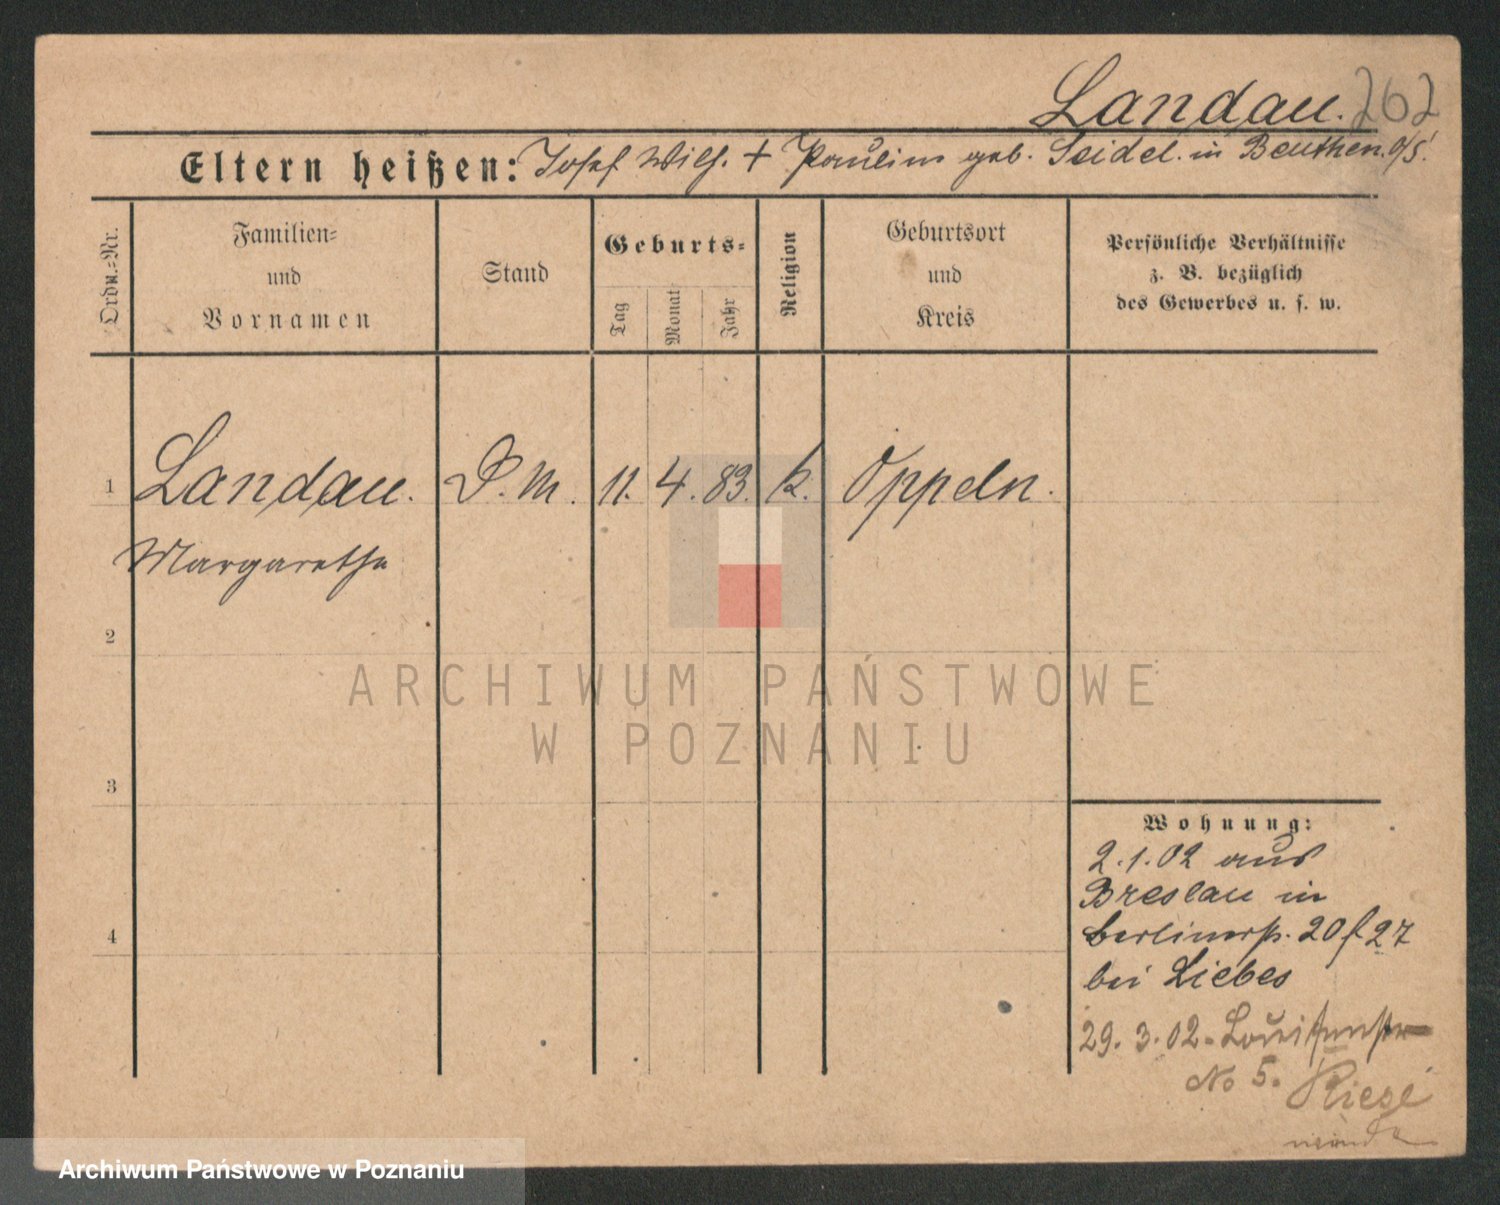 Landau. 262
Eltern heißen: Josef Wilh. + Pauline geb. Seidel. in Beuthen. O/S.
Ordn.-Nr.
Familien-
und
Vornamen
Stand
Geburts-
Tag
Monat
Jahr
Religion
Geburtsort
und
Kreis
Persönliche Verhältnisse
z. B. bezüglich
des Gewerbes u. s. w.
1 Landau. D. M. 11. 4. 83. k. Oppeln.
Margarethe
2
ARCHIWUM PAŃSTWOWE
W POZNANIU
3
Wohnung:
2.1.02 aus
Breslau in
4 Berlinerstr. 20 f 27
bei Liebes
29.3.02. Louisenstr
No 5. Riese
Archiwum Państwowe w Poznaniu